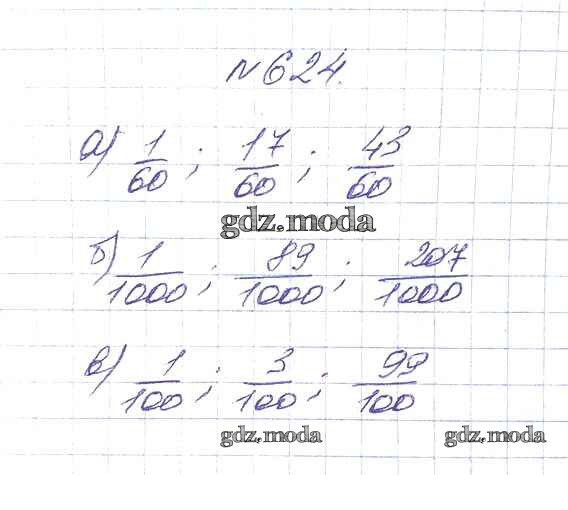 №624.
а) 1/60; 17/60; 43/60
gdz.moda
б) 1/1000; 89/1000; 207/1000
в) 1/100; 3/100; 99/100
gdz.moda gdz.moda